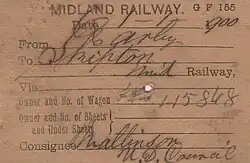 MIDLAND RAILWAY. G F 155
Date 1900
From
To Skipton
Mid Railway,
Via
Owner and No. of Wagon 115848
Owner and No. of Sheets
and Under Sheets
Consignee Mattinson
U. D. Council